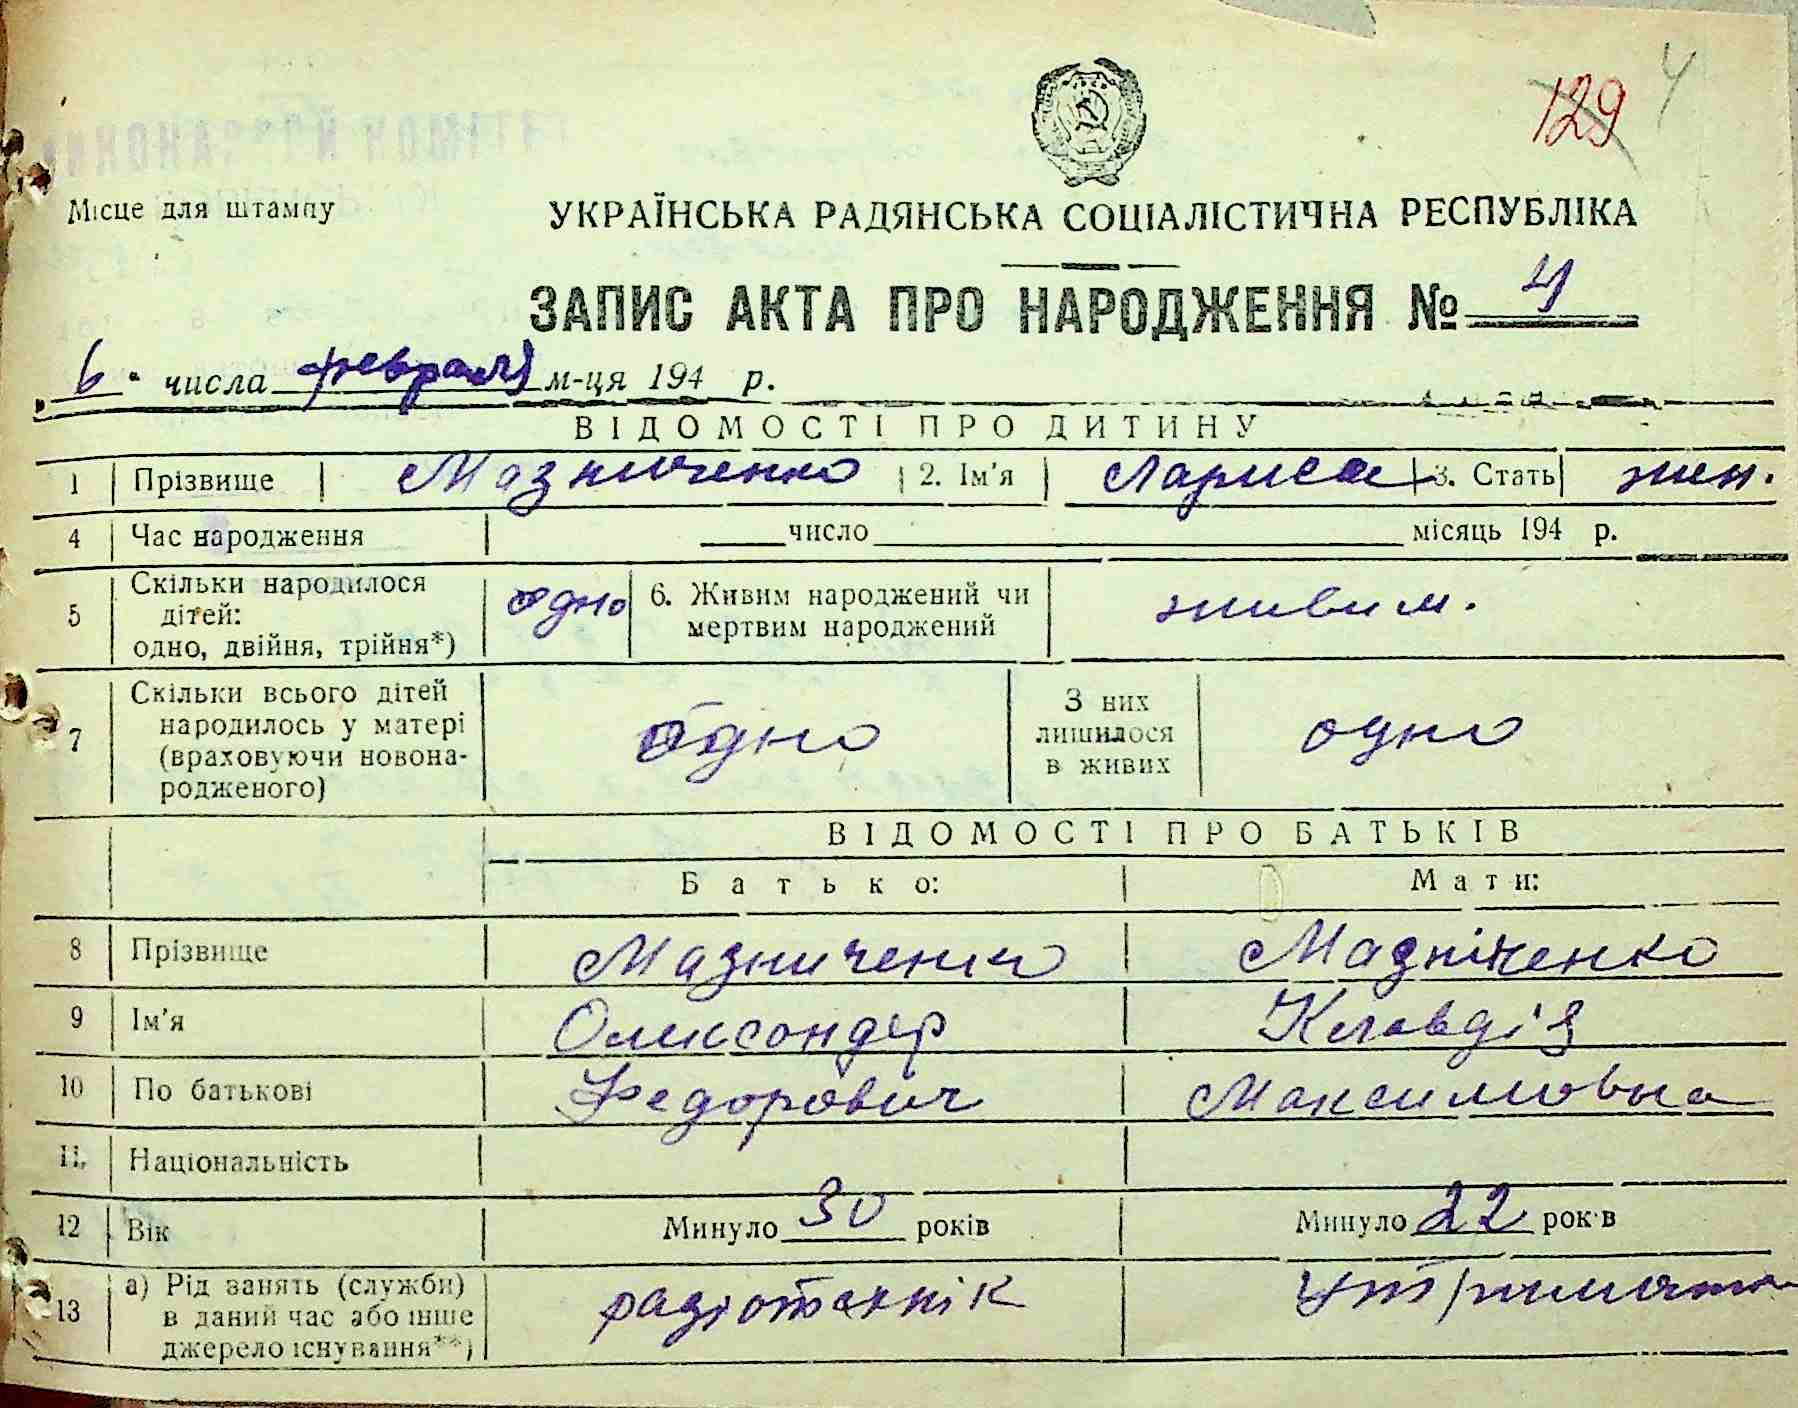 129 4
Місце для штампу
УКРАЇНСЬКА РАДЯНСЬКА СОЦІАЛІСТИЧНА РЕСПУБЛІКА
ЗАПИС АКТА ПРО НАРОДЖЕННЯ № 4
6 числа февраля м-ця 194 р.
ВІДОМОСТІ ПРО ДИТИНУ
1 Прізвище Мазниченко 2. Ім'я Лариса 3. Стать жен.
4 Час народження число місяць 194 р.
5 Скільки народилося дітей: одно, двійня, трійня*) одно 6. Живим народжений чи мертвим народжений живим.
7 Скільки всього дітей народилось у матері (враховуючи новонародженого) одно З них лишилося в живих одно
ВІДОМОСТІ ПРО БАТЬКІВ
Батько: Мати:
8 Прізвище Мазниченко Мазніченко
9 Ім'я Олександер Клавдія
10 По батькові Федорович Максимовна
11. Національність
12 Вік Минуло 30 років Минуло 22 років
13 а) Рід занять (служби) в даний час або інше джерело існування**) радіотехнік